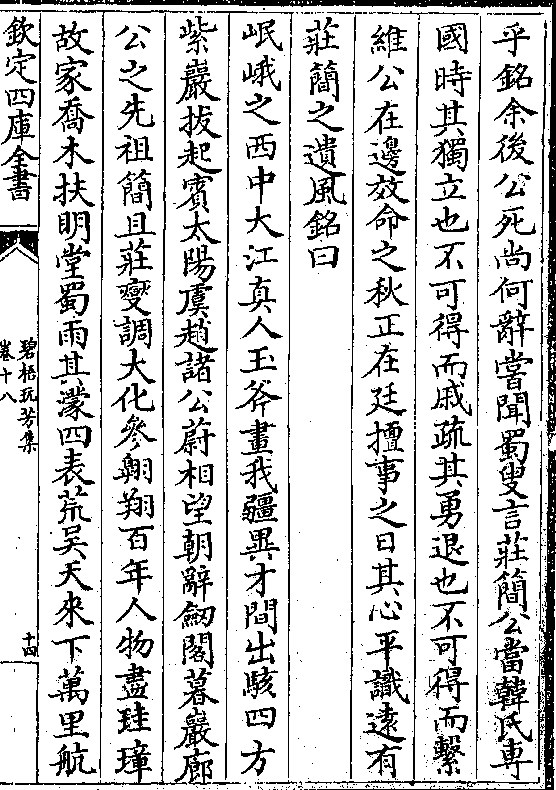 乎銘余後公死尚何辭嘗聞蜀叟言莊簡公當韓氏專
國時其獨立也不可得而戚疏其勇退也不可得而繫
維公在邊效命之秋正在廷擅事之日其心平識遠有
莊簡之遺風銘曰
岷峨之西中大江真人玉斧畫我疆異才間出駭四方
紫巖拔起賓太陽虞趙諸公蔚相望朝辭劒閣暮巖廊
公之先祖簡且莊變調大化參翺翔百年人物盡珪璋
故家喬木扶明堂蜀雨其濛四表荒吴天來下萬里航
欽定四庫全書
碧梧玩芳集
卷十八
十四